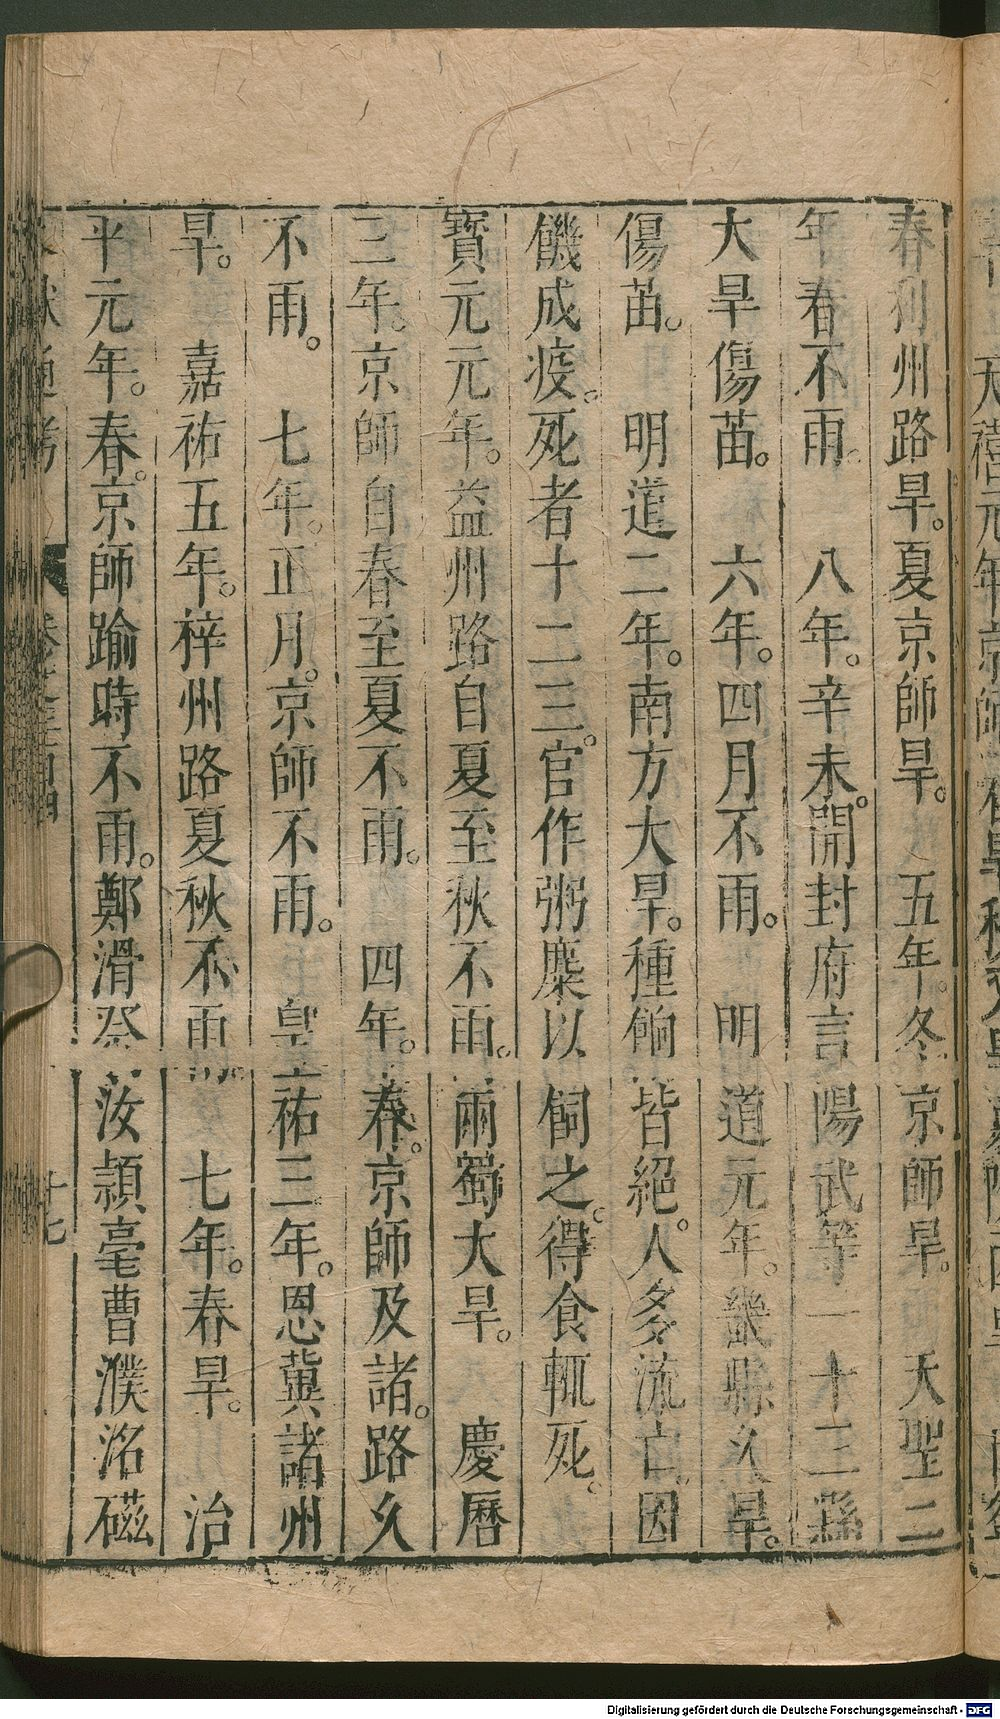 春利州路旱。夏京師旱。　五年。冬京師旱。　天聖二
年春不雨。　八年。辛未。開封府言陽武等一十三縣
大旱傷苗。　六年。四月不雨。　明道元年。畿縣久旱。
傷苗。　明道二年。南方大旱。種餉皆絕。人多流亡。因
饑成疫。死者十二三。官作粥糜以飼之。得食輒死。
寶元元年。益州路自夏至秋不雨。兩蜀大旱。　慶曆
三年。京師自春至夏不雨。　四年。春。京師及諸。路久
不雨。　七年。正月。京師不雨。　皇祐三年。恩冀諸州
旱。　嘉祐五年。梓州路夏秋不雨　七年。春旱。　治
平元年。春。京師踰時不雨。鄭滑蔡汝頴亳曹濮洺磁
通考
十七
Digitalisierung gefördert durch die Deutsche Forschungsgemeinschaft - DFG